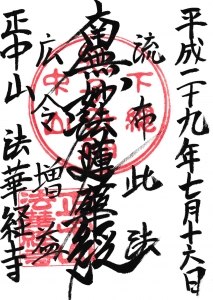 平成二十九年七月十六日
流布此法
南無妙法蓮華経
広令増益
正中山 法華経寺